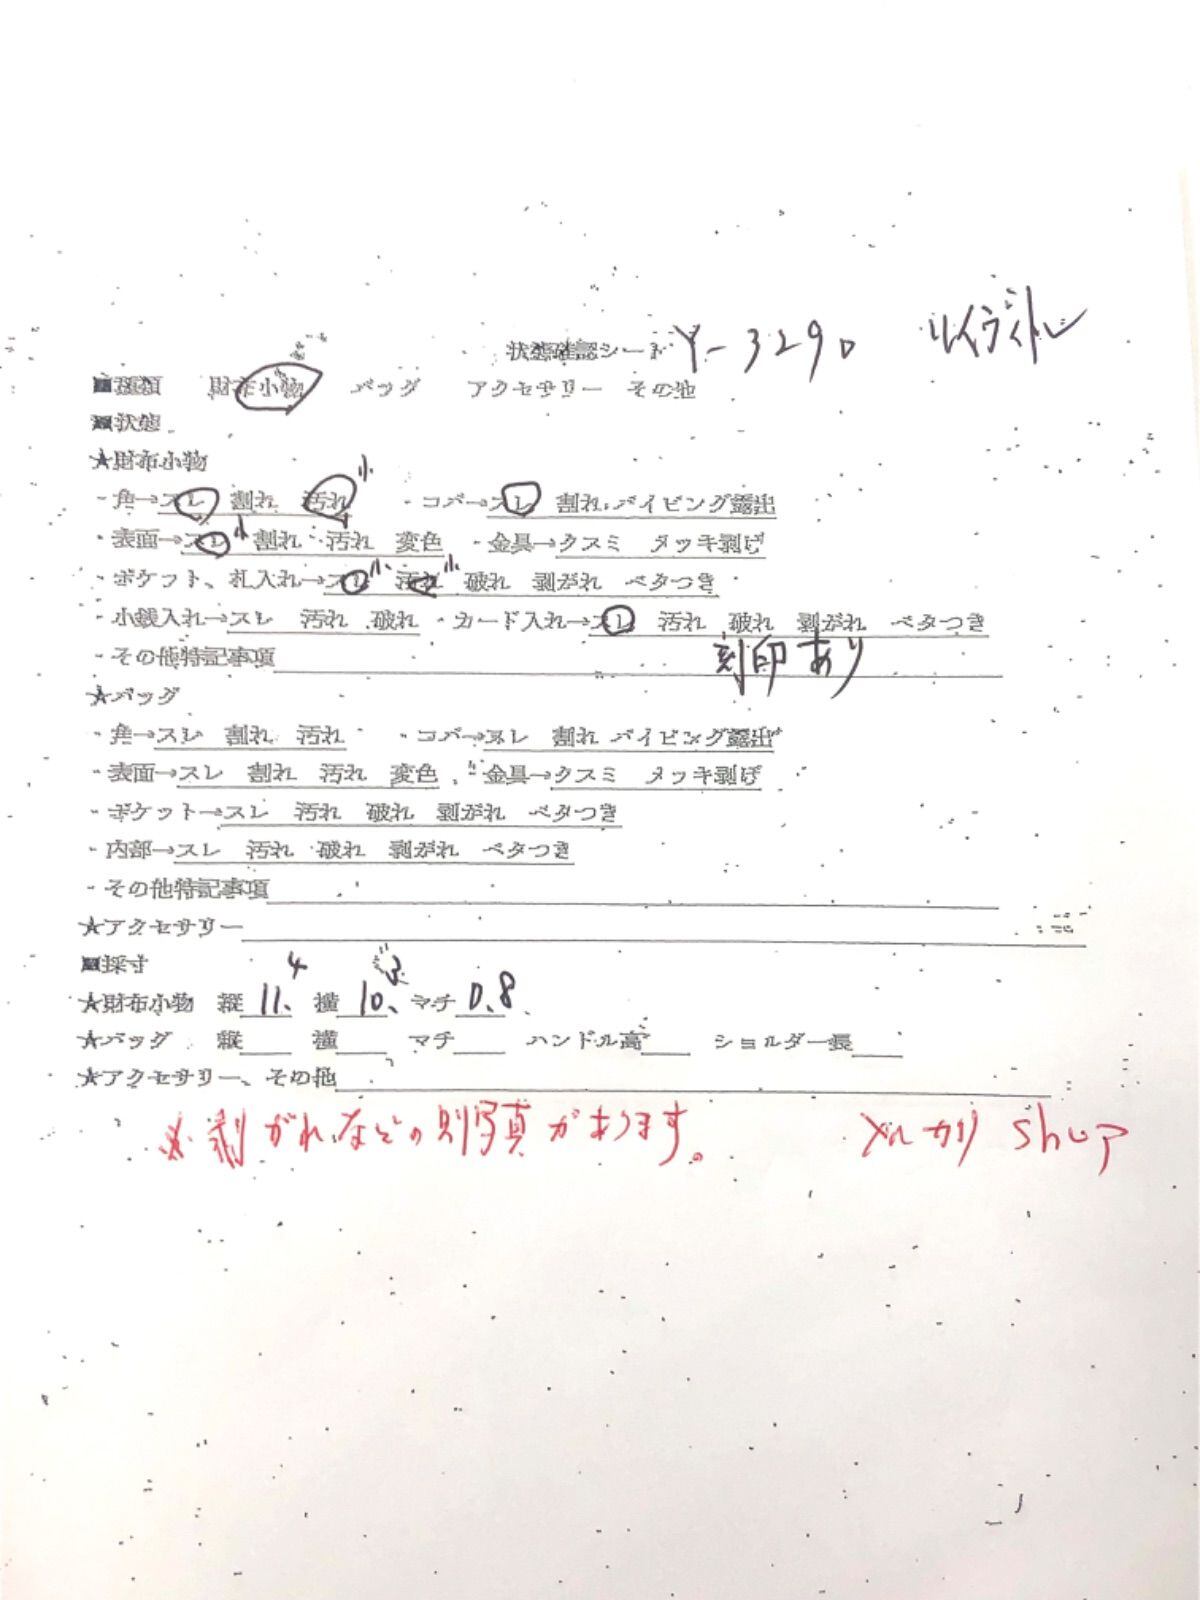 状態確認シート Y-3290 ルイヴィトン
■種類 財布小物 バッグ アクセサリー その他
■状態
★財布小物
・角→スレ 割れ 汚れ小 ・コバ→スレ 割れ、パイピング露出
・表面→スレ小 割れ 汚れ 変色 ・金具→クスミ メッキ剥げ
・ポケット、札入れ→スレ小 汚れ小 破れ 剥がれ ベタつき
・小銭入れ→スレ 汚れ 破れ ・カード入れ→スレ 汚れ 破れ 剥がれ ベタつき
・その他特記事項 刻印あり
★バッグ
・角→スレ 割れ 汚れ ・コバ→スレ 割れ パイピング露出
・表面→スレ 割れ 汚れ 変色 ・金具→クスミ メッキ剥げ
・ポケット→スレ 汚れ 破れ 剥がれ ベタつき
・内部→スレ 汚れ 破れ 剥がれ ベタつき
・その他特記事項
★アクセサリー
■採寸
★財布小物 縦 11.4 横 10.3 マチ 0.8
★バッグ 縦 横 マチ ハンドル高 ショルダー長
★アクセサリー、その他
※剥がれなどの別写真があります。 メルカリ shop